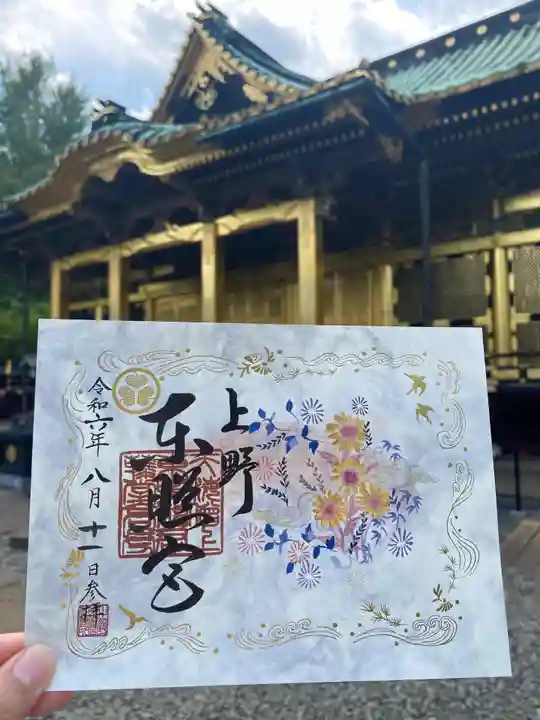 上野
東照宮
令和六年 八月 十一日参拝